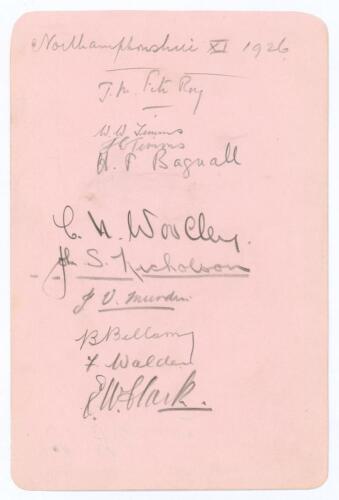 Northamptonshire XI 1926
J.M. Fitz Roy
W. W. Timms
J E Timms
H. F Bagnall
C. N. Woolley.
John S. Nicholson
J V. Murdin
B Bellamy
F. Walden
E. W. Clark.